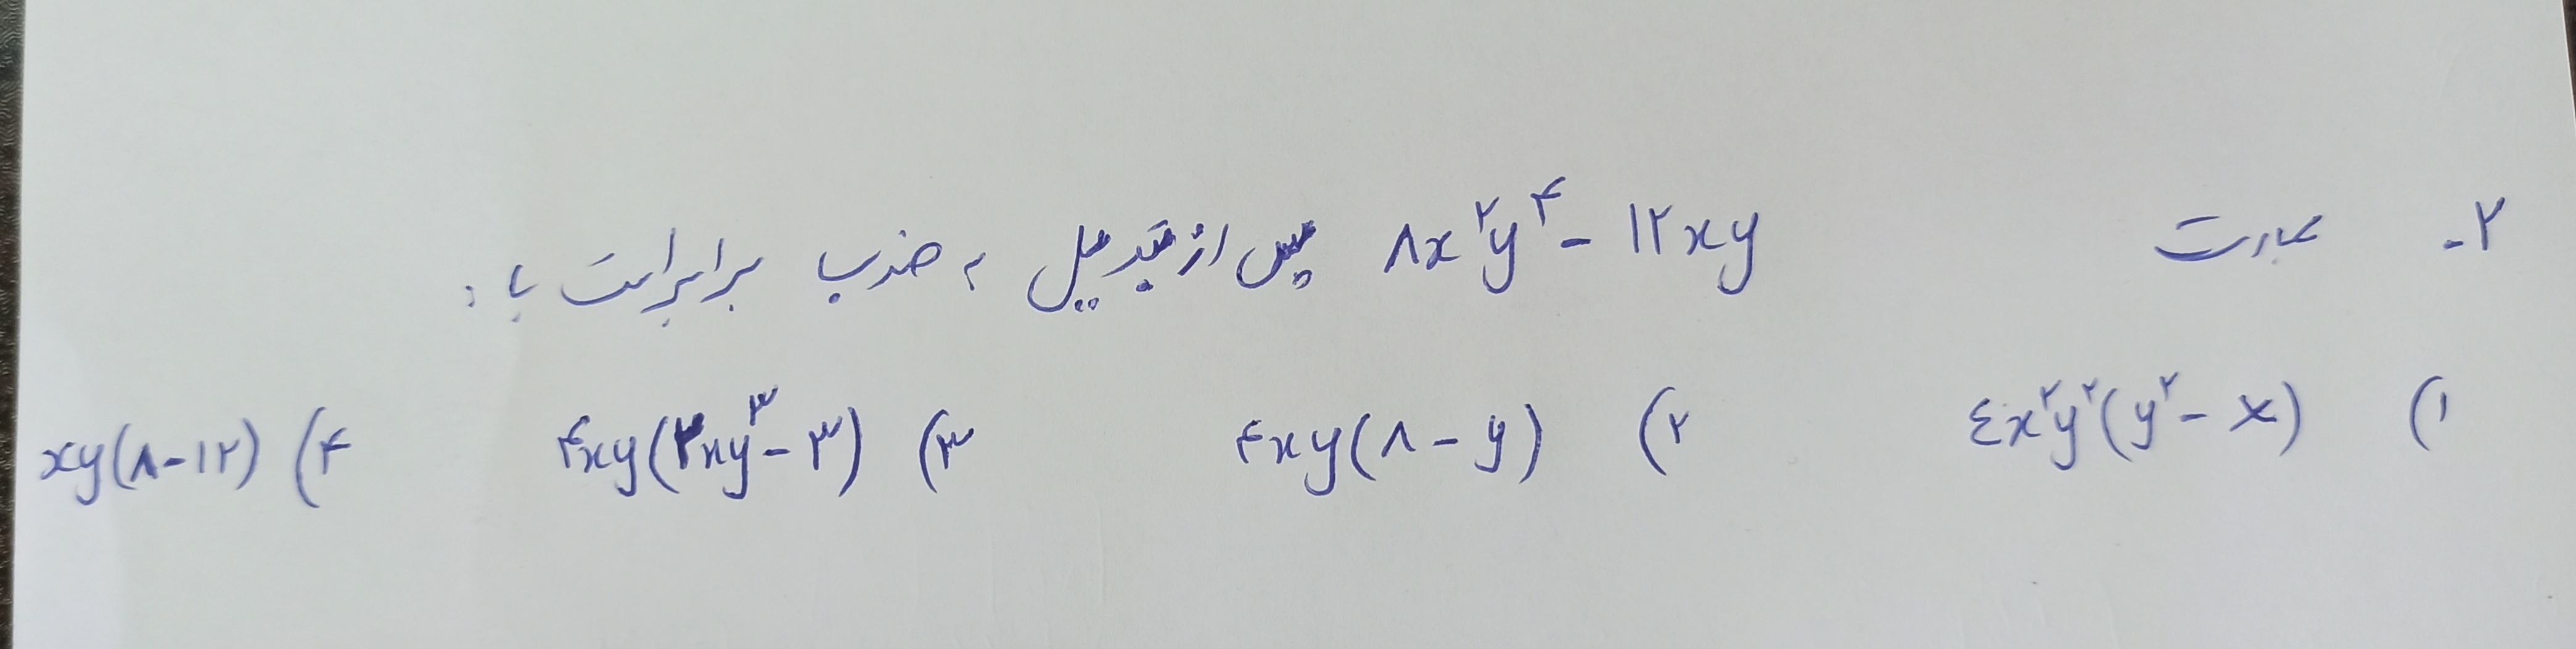 ۲- عبارت ۸x^۲y^۴ - ۱۲xy پس از تبدیل به ضرب برابر است با:
۱) ٤x^۲y^۲(y^۲ - x) ۲) ۴xy(۸ - y) ۳) ۴xy(۲xy^۳ - ۳) ۴) xy(۸ - ۱۲)